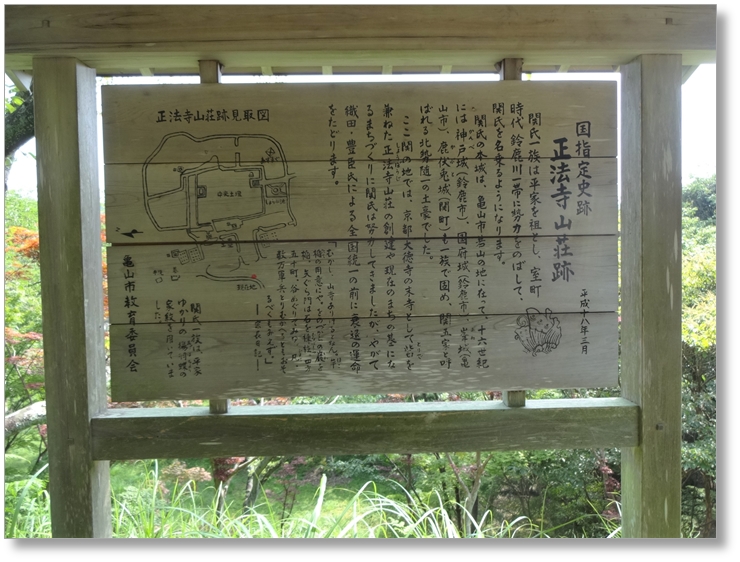 国指定史跡
正法寺山荘跡
平成十八年三月
関氏一族は平家を祖とし、室町
時代鈴鹿川一帯に勢力をのばして、
関氏を名乗るようになります。
関氏の本城は、亀山市若山の地に在って、十六世紀
には神戸城(鈴鹿市)、国府城(鈴鹿市)、峯城(亀
山市)、鹿伏兎城(関町)も一族で固め、関五家と呼
ばれる北勢随一の土豪でした。
ここ関の地では、京都大徳寺の末寺として砦を
兼ねた正法寺山荘の創建や現在のまちの基にな
るまちづくりに関氏は努力してきましたが、やがて
織田・豊臣氏による全国統一の前に衰退の運命
をたどります。
正法寺山荘跡見取図
関氏一族は平家
ゆかりの
家紋を用いていま
した。
亀山市教育委員会